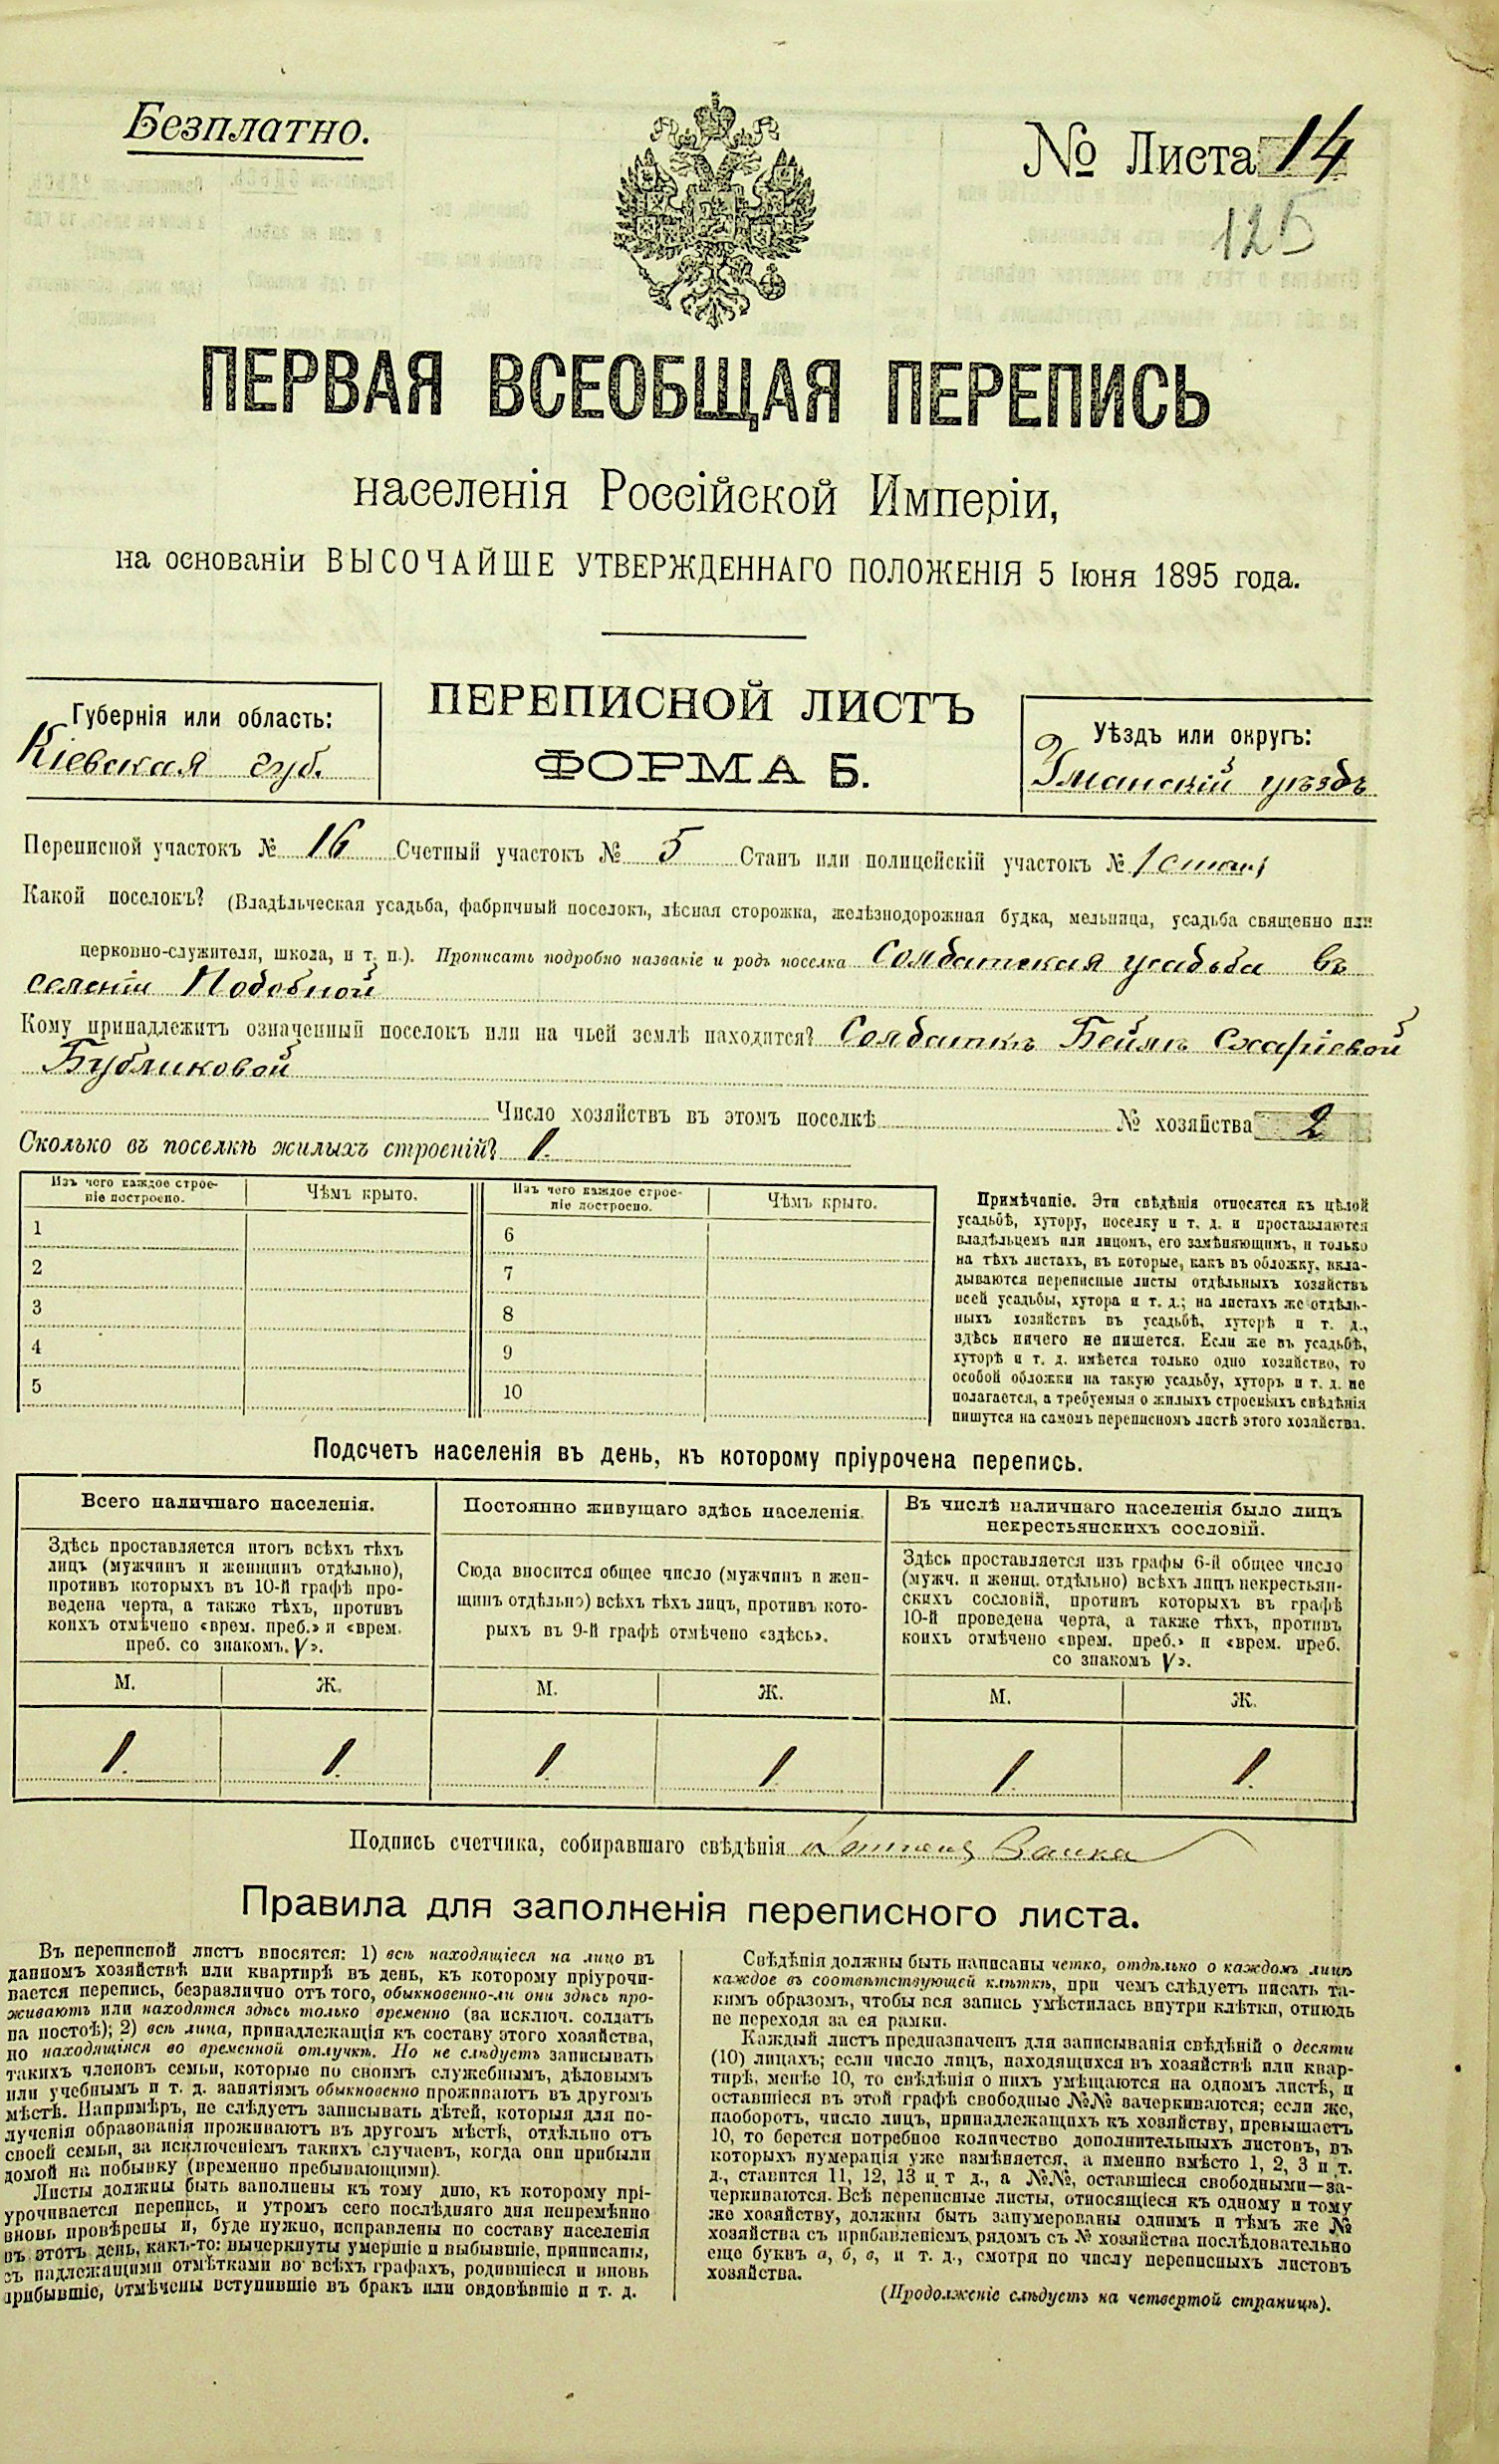 Безплатно.
№ Листа 14
125
ПЕРВАЯ ВСЕОБЩАЯ ПЕРЕПИСЬ
населенія Россійской Имперіи,
на основаніи ВЫСОЧАЙШЕ УТВЕРЖДЕННАГО ПОЛОЖЕНІЯ 5 Іюня 1895 года.
Губернія или область:
Кіевская губ.
ПЕРЕПИСНОЙ ЛИСТЪ
ФОРМА Б.
Уѣздъ или округъ:
Уманскій уѣздъ
Переписной участокъ № 16 Счетный участокъ № 5 Станъ или полицейскій участокъ № 1 стан
Какой поселокъ? (Владѣльческая усадьба, фабричный поселокъ, лѣсная сторожка, желѣзнодорожная будка, мельница, усадьба священно или
церковно-служителя, школа, и т. п.). Прописать подробно названіе и родъ поселка Солдатская усадьба въ
селеніи Подобной
Кому принадлежитъ означенный поселокъ или на чьей землѣ находится? Солдаткѣ Бейлѣ
Бубликовой
Число хозяйствъ въ этомъ поселкѣ № хозяйства 2
Сколько въ поселкѣ жилыхъ строеній? 1.
Изъ чего каждое строе-
ніе построено.
Чѣмъ крыто.
Изъ чего каждое строе-
ніе построено.
Чѣмъ крыто.
1
2
3
4
5
6
7
8
9
10
Примѣчаніе. Эти свѣдѣнія относятся къ цѣлой
усадьбѣ, хутору, поселку и т. д. и проставляются
владѣльцемъ или лицомъ, его замѣняющимъ, и только
на тѣхъ листахъ, въ которые, какъ въ обложку, вкла-
дываются переписные листы отдѣльныхъ хозяйствъ
всей усадьбы, хутора и т. д.; на листахъ же отдѣль-
ныхъ хозяйствъ въ усадьбѣ, хуторѣ и т. д.,
здѣсь ничего не пишется. Если же въ усадьбѣ,
хуторѣ и т. д. имѣется только одно хозяйство, то
особой обложки на такую усадьбу, хуторъ и т. д. не
полагается, а требуемыя о жилыхъ строеніяхъ свѣдѣнія
пишутся на самомъ переписномъ листѣ этого хозяйства.
Подсчетъ населенія въ день, къ которому пріурочена перепись.
Всего наличнаго населенія.
Здѣсь проставляется итогъ всѣхъ тѣхъ
лицъ (мужчинъ и женщинъ отдѣльно),
противъ которыхъ въ 10-й графѣ про-
ведена черта, а также тѣхъ, противъ
коихъ отмѣчено «врем. преб.» и «врем.
преб. со знакомъ V».
М. Ж.
1. 1.
Постоянно живущаго здѣсь населенія.
Сюда вносится общее число (мужчинъ и жен-
щинъ отдѣльно) всѣхъ тѣхъ лицъ, противъ кото-
рыхъ въ 9-й графѣ отмѣчено «здѣсь».
М. Ж.
1. 1.
Въ числѣ наличнаго населенія было лицъ
некрестьянскихъ сословій.
Здѣсь проставляется изъ графы 6-й общее число
(мужч. и женщ. отдѣльно) всѣхъ лицъ некрестьян-
скихъ сословій, противъ которыхъ въ графѣ
10-й проведена черта, а также тѣхъ, противъ
коихъ отмѣчено «врем. преб.» и «врем. преб.
со знакомъ V».
М. Ж.
1. 1.
Подпись счетчика, собиравшаго свѣдѣнія
Правила для заполненія переписного листа.
Въ переписной листъ вносятся: 1) всѣ находящіеся на лицо въ
данномъ хозяйствѣ или квартирѣ въ день, къ которому пріурочи-
вается перепись, безразлично отъ того, обыкновенно-ли они здѣсь про-
живаютъ или находятся здѣсь только временно (за исключ. солдатъ
на постоѣ); 2) всѣ лица, принадлежащія къ составу этого хозяйства,
но находящіяся во временной отлучкѣ. Но не слѣдуетъ записывать
такихъ членовъ семьи, которые по своимъ служебнымъ, дѣловымъ
или учебнымъ и т. д. занятіямъ обыкновенно проживаютъ въ другомъ
мѣстѣ. Напримѣръ, не слѣдуетъ записывать дѣтей, которыя для по-
лученія образованія проживаютъ въ другомъ мѣстѣ, отдѣльно отъ
своей семьи, за исключеніемъ такихъ случаевъ, когда они прибыли
домой на побывку (временно пребывающими).
Листы должны быть заполнены къ тому дню, къ которому прі-
урочивается перепись, и утромъ сего послѣдняго дня непремѣнно
вновь провѣрены и, буде нужно, исправлены по составу населенія
въ этотъ день, какъ-то: вычеркнуты умершіе и выбывшіе, приписаны,
съ надлежащими отмѣтками во всѣхъ графахъ, родившіеся и вновь
прибывшіе, отмѣчены вступившіе въ бракъ или овдовѣвшіе и т. д.
Свѣдѣнія должны быть написаны четко, отдѣльно о каждомъ лицѣ
каждое въ соотвѣтствующей клѣткѣ, при чемъ слѣдуетъ писать та-
кимъ образомъ, чтобы вся запись умѣстилась внутри клѣтки, отнюдь
не переходя за ея рамки.
Каждый листъ предназначенъ для записыванія свѣдѣній о десяти
(10) лицахъ; если число лицъ, находящихся въ хозяйствѣ или квар-
тирѣ, менѣе 10, то свѣдѣнія о нихъ умѣщаются на одномъ листѣ, и
оставшіеся въ этой графѣ свободные №№ зачеркиваются; если же,
наоборотъ, число лицъ, принадлежащихъ къ хозяйству, превышаетъ
10, то берется потребное количество дополнительныхъ листовъ, въ
которыхъ нумерація уже измѣняется, а именно вмѣсто 1, 2, 3 и т.
д., ставится 11, 12, 13 и т д., а №№, оставшіеся свободными—за-
черкиваются. Всѣ переписные листы, относящіеся къ одному и тому
же хозяйству, должны быть занумерованы однимъ и тѣмъ же №
хозяйства съ прибавленіемъ, рядомъ съ № хозяйства послѣдовательно
еще буквъ а, б, в, и т. д., смотря по числу переписныхъ листовъ
хозяйства.
(Продолженіе слѣдуетъ на четвертой страницѣ).